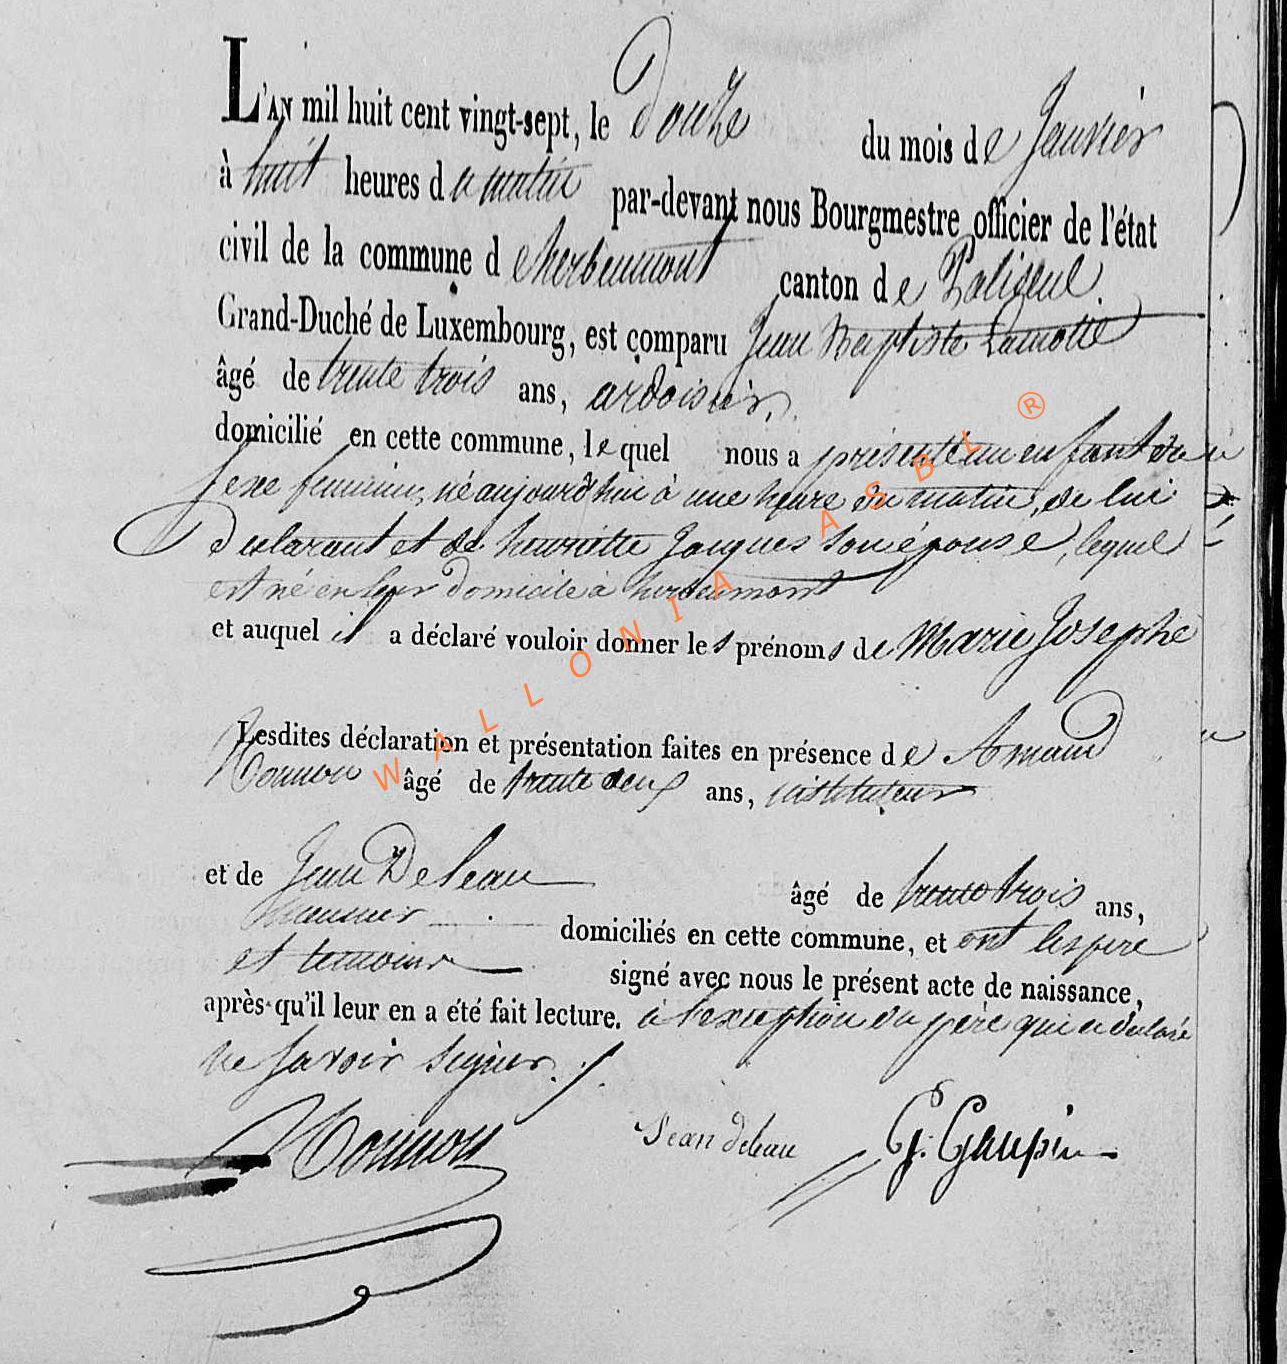 L'AN mil huit cent vingt-sept, le Douze du mois de Janvier
à huit heures du matin par-devant nous Bourgmestre officier de l'état
civil de la commune d'herbeumont canton de Paliseul
Grand-Duché de Luxembourg, est comparu Jean Baptiste Lamotte
âgé de trente trois ans, ardoisier,
domicilié en cette commune, lequel nous a présenté un enfant du
sexe feminin, né aujourd'hui à une heure du matin, de lui
Déclarant et de henriette Jacques son épouse, lequel
est né en leur domicile à herbeumont
et auquel il a déclaré vouloir donner les prénoms de Marie Josephe
Lesdites déclaration et présentation faites en présence de Arnaud
âgé de trente deux ans, instituteur
et de Jean Deleau âgé de trente trois ans,
domiciliés en cette commune, et ont les père
et temoins signé avec nous le présent acte de naissance,
après qu'il leur en a été fait lecture. à l'exception du père qui a déclaré
ne savoir signer.
Jean deleau G. Gaupin
WALLONIA ASBL ®